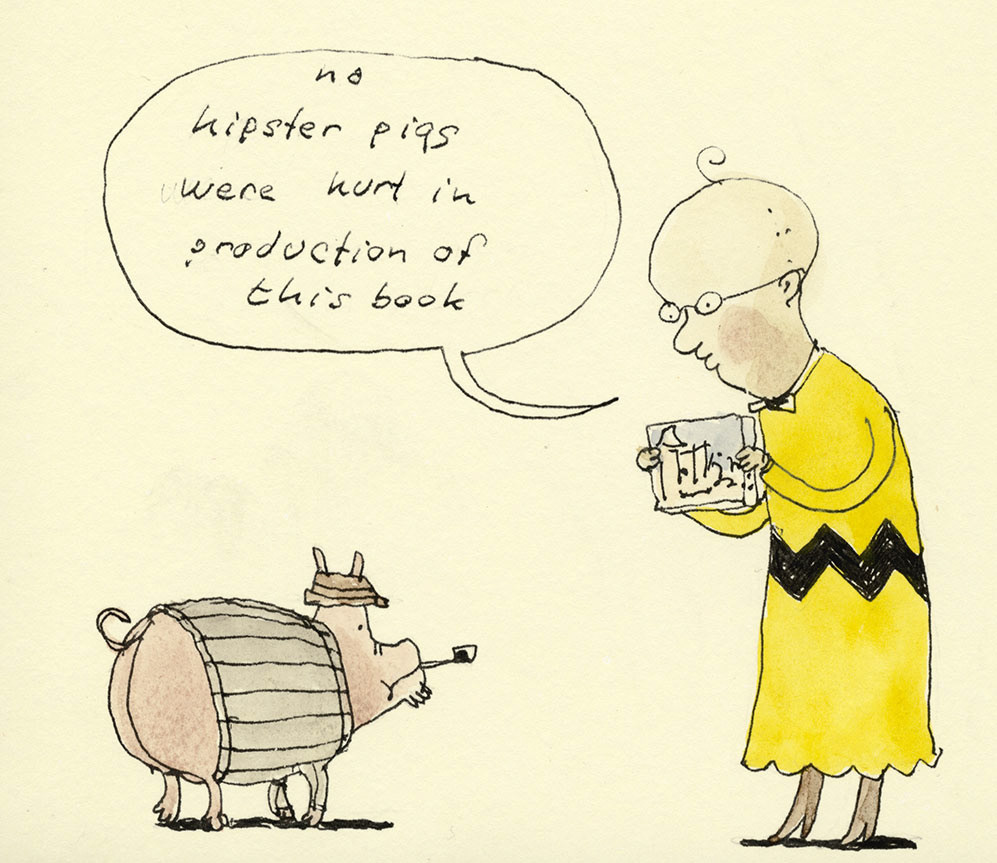 no
hipster pigs
were hurt in
production of
this book